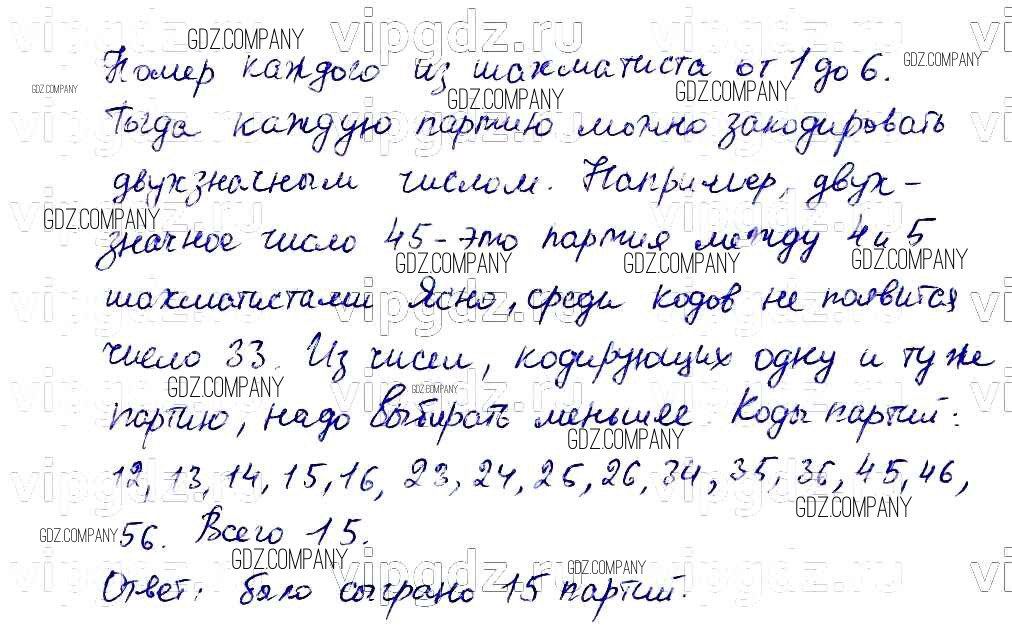 Номер каждого из шахматиста от 1 до 6.
Тогда каждую партию можно закодировать
двухзначным числом. Например, двух-
значное число 45 - это партия между 4 и 5
шахматистами Ясно, среди кодов не появится
число 33. Из чисел, кодирующих одну и ту же
партию, надо выбирать меньшее Коды партий:
12, 13, 14, 15, 16, 23, 24, 25, 26, 34, 35, 36, 45, 46,
56. Всего 15.
Ответ: было сыграно 15 партий.